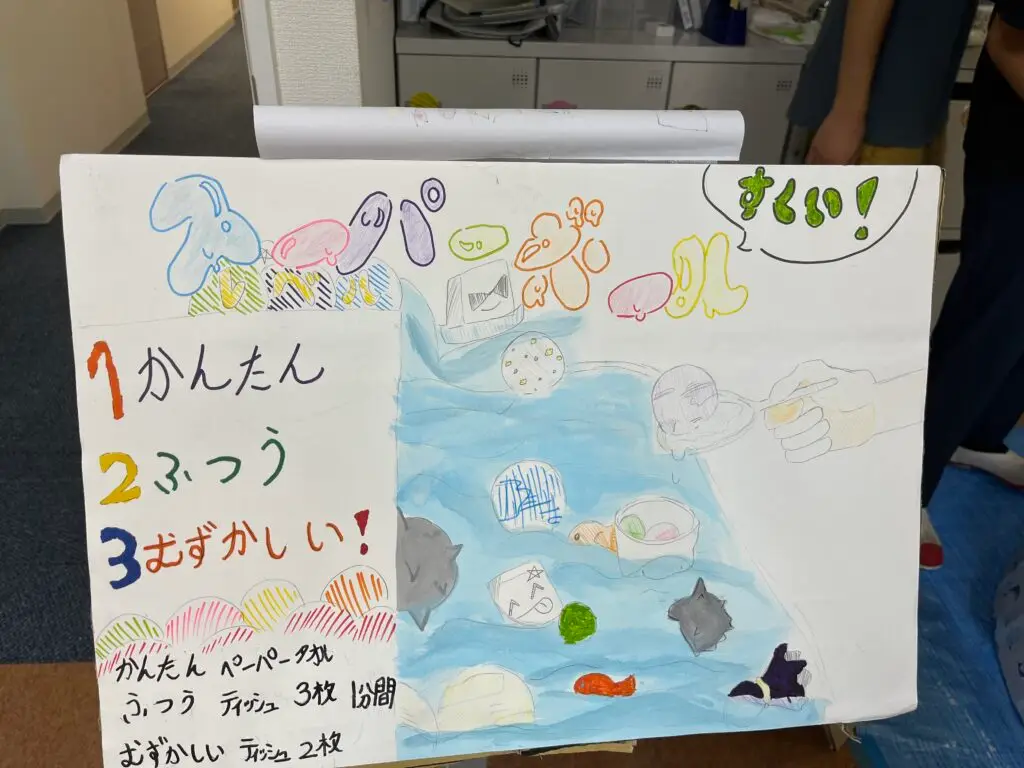 スーパーボール
すくい!
レベル
1かんたん
2ふつう
3むずかしい!
かんたん ペーパータオル
ふつう ティッシュ 3枚 1分間
むずかしい ティッシュ 2枚